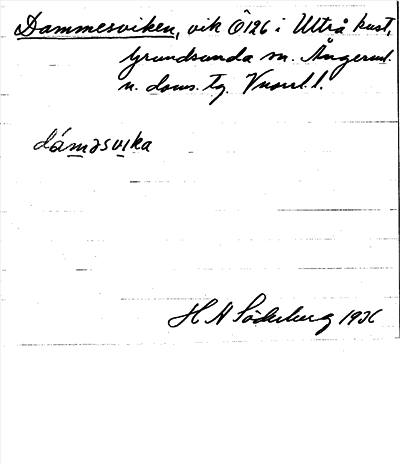 Dammesviken, vik Ö126 i Ultrå kust,
Grundsunda sn. Ångerml.
n. doms. tg. Vnorrl. l.
dámǝsvika
H N Söderberg 1936